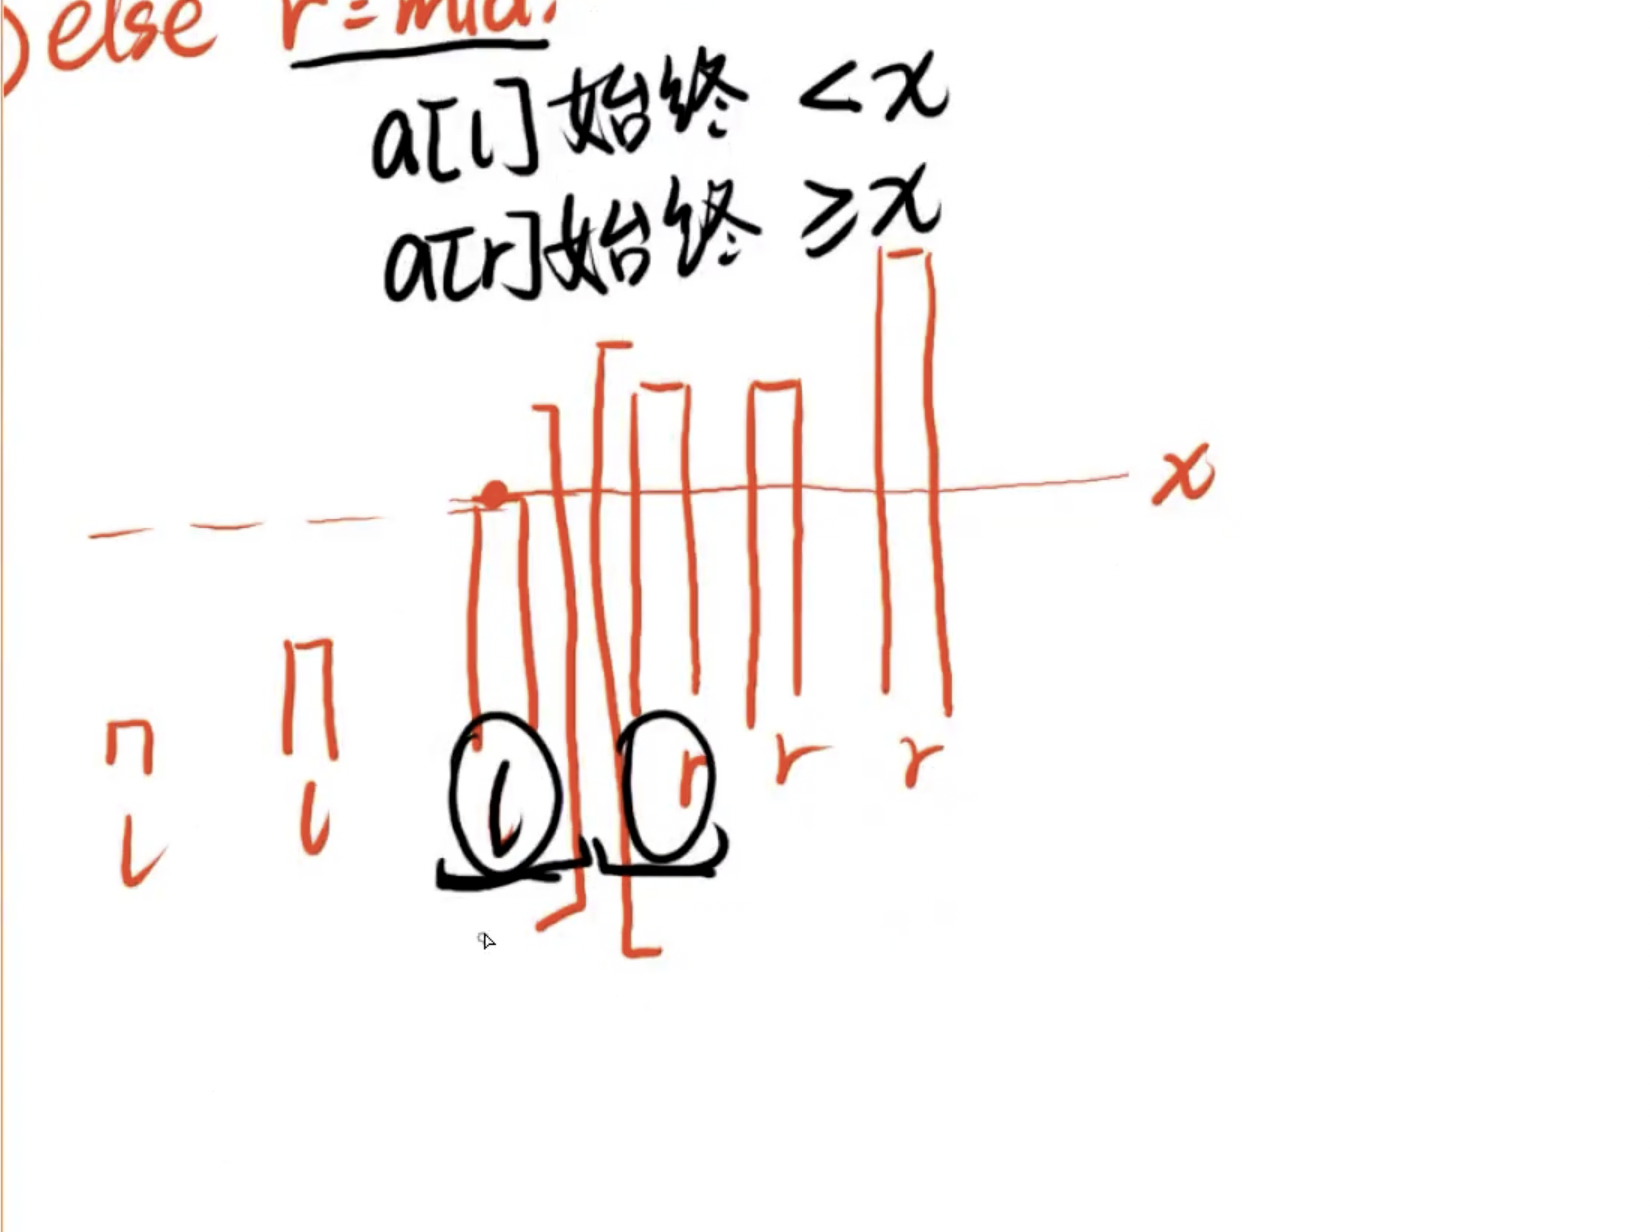 ) else r=mid;
a[l]始终 <x
a[r]始终 ≥x
x
l l l r r r